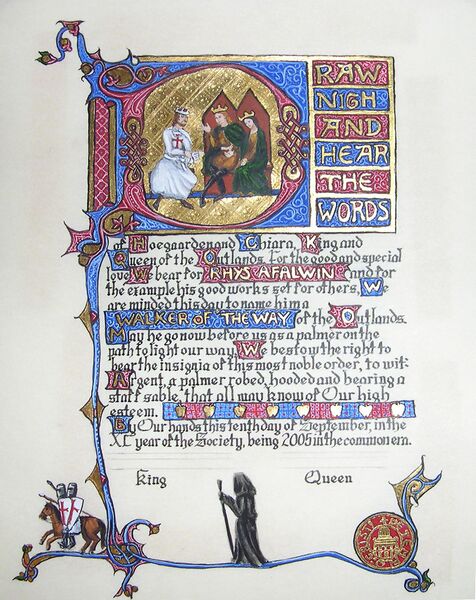 DRAW
NIGH
AND
HEAR
THE
WORDS
of Hoegaarden and Chiara, King and
Queen of the Outlands. For the good and special
love We bear for RHYS AFALWIN and for
the example his good works set for others, We
are minded this day to name him a
WALKER OF THE WAY of the Outlands.
May he go now before us as a palmer on the
path to light our way. We bestow the right to
bear the insignia of this most noble order, to wit:
Argent, a palmer robed, hooded and bearing a
staff sable, that all may know of Our high
esteem.
By Our hands this tenth day of September, in the
XL year of the Society, being 2005 in the common era.
King Queen